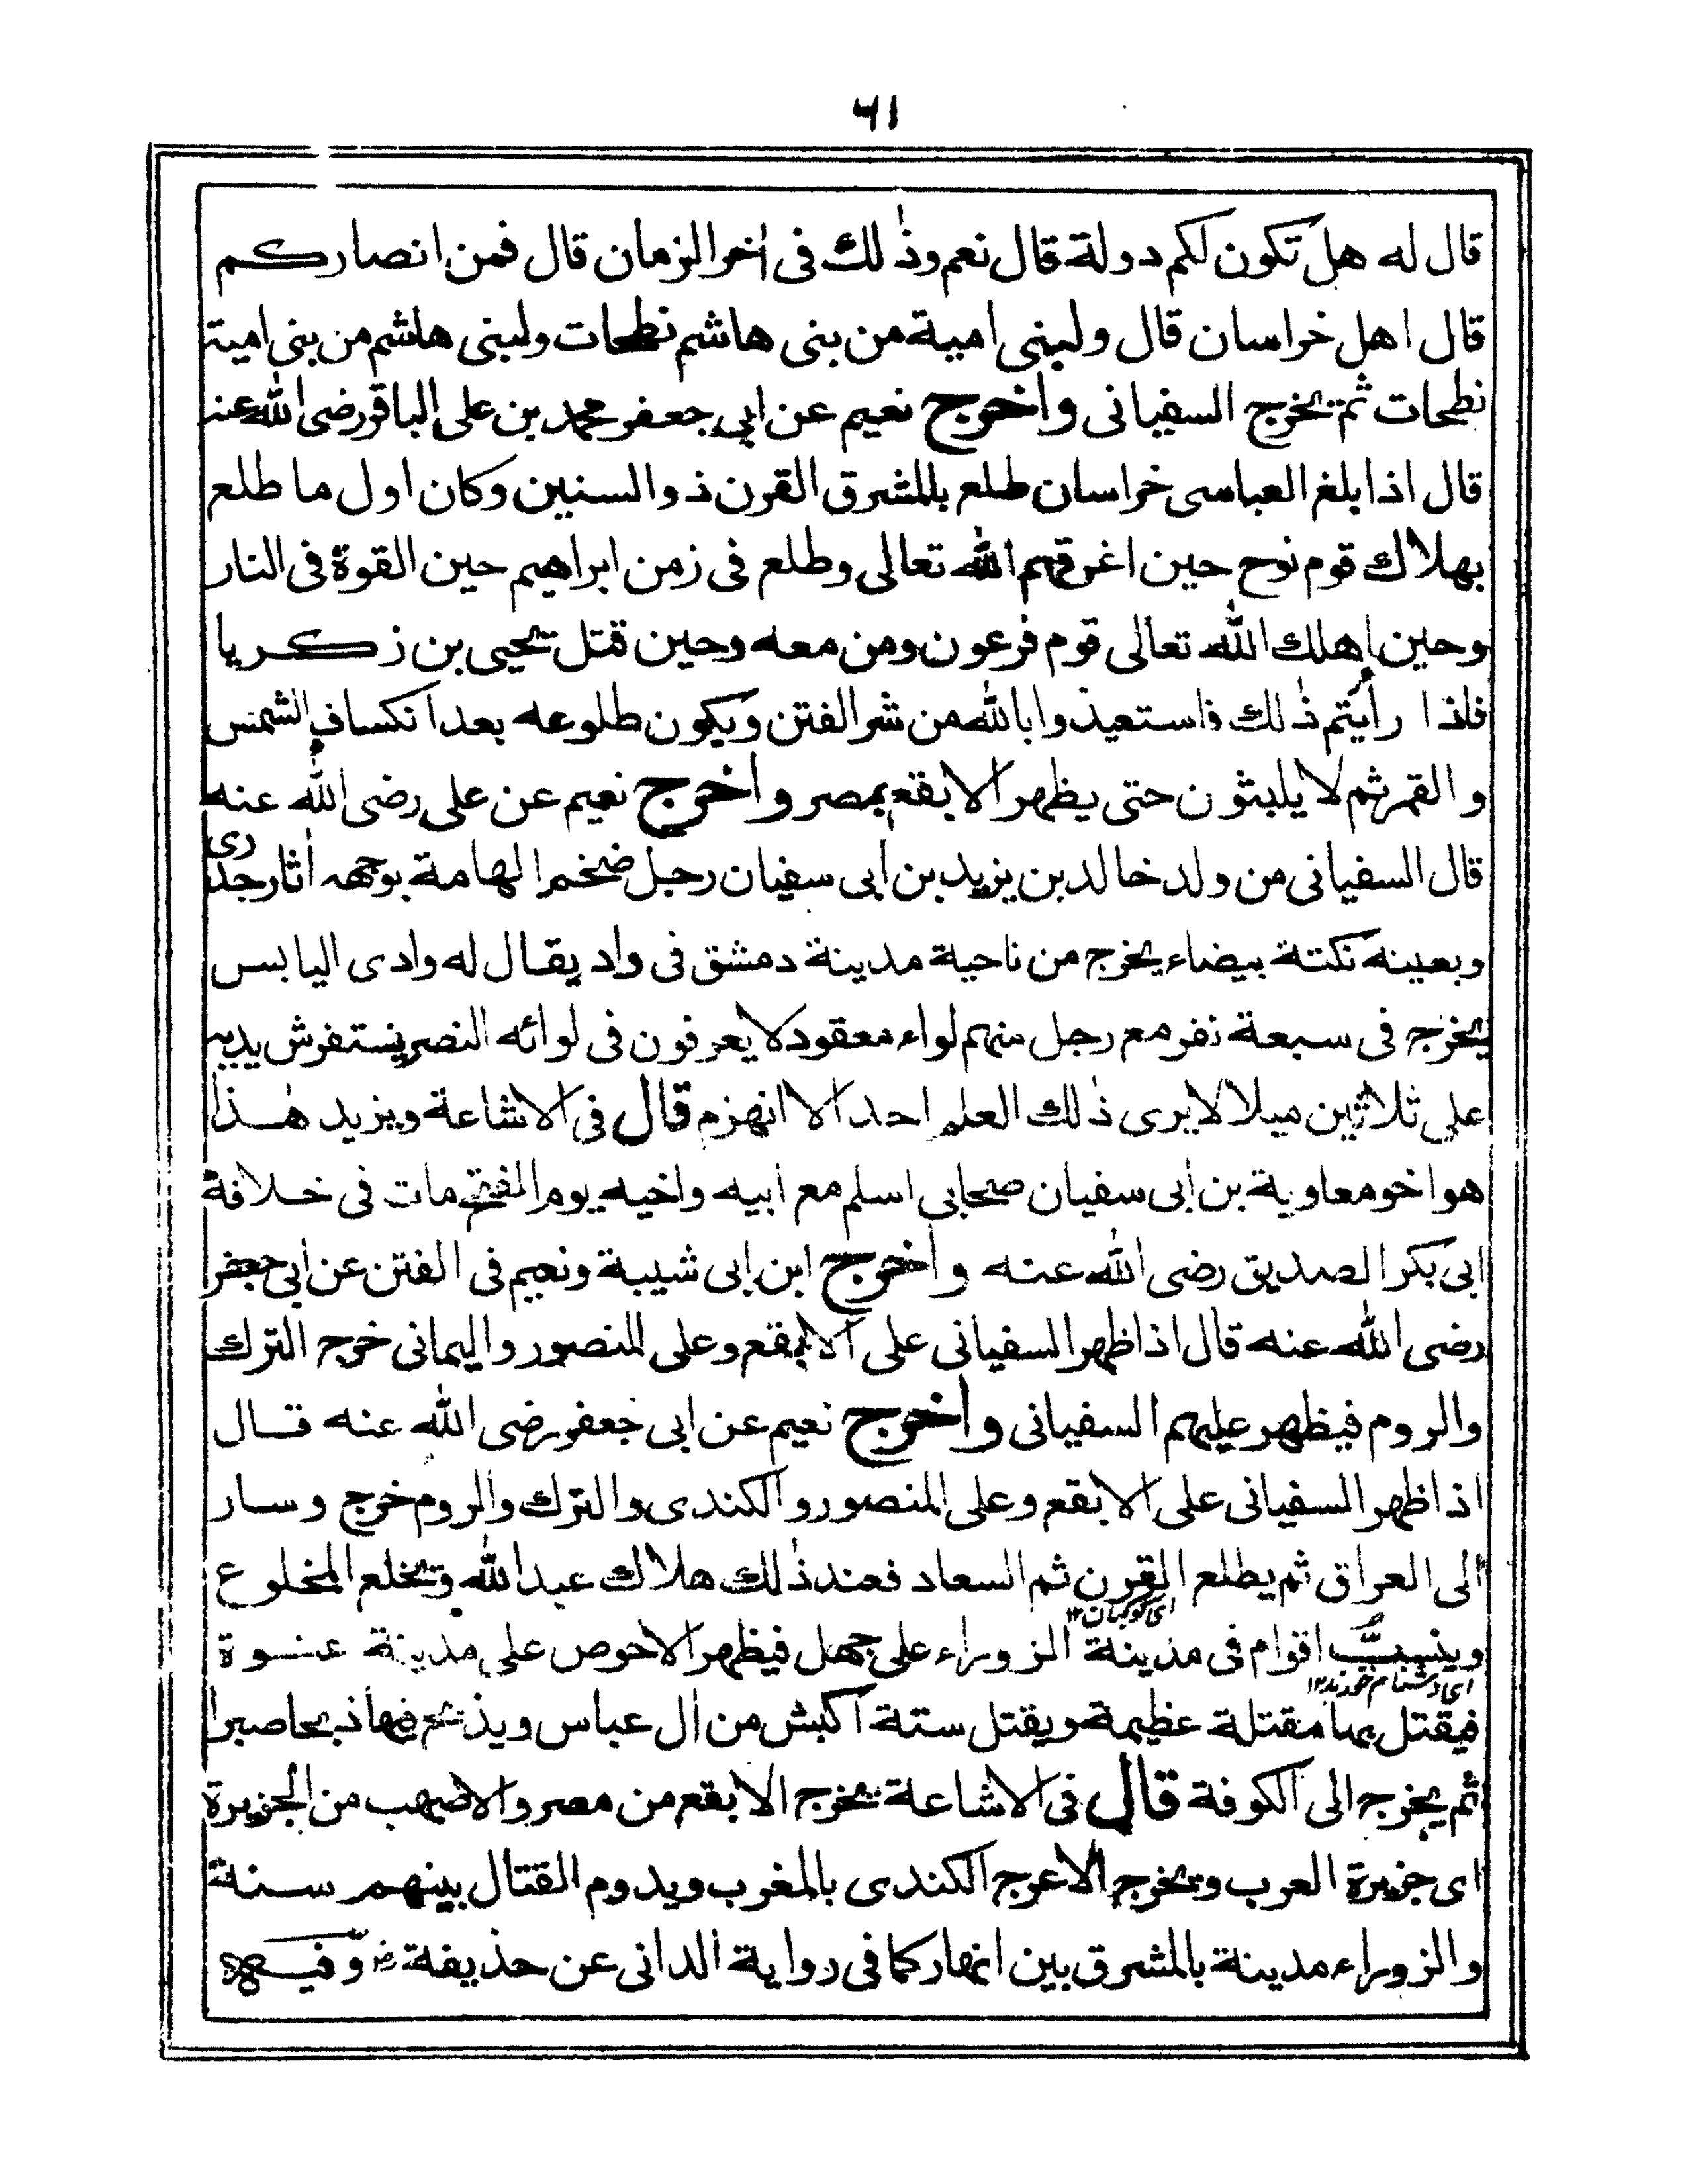 ٦١
قال له هل تكون لكم دولة قال نعم وذٰلك فى اٰخر الزمان قال فمن انصاركم
قال اهل خراسان قال ولبنى امية من بنى هاشم نطحات ولبنى هاشم من بنى امية
نطحات ثم يخرج السفيانى واخرج نعيم عن ابى جعفر محمد بن على الباقر رضى الله عنه
قال اذا بلغ العباسى خراسان طلع بالمشرق القرن ذو السنين وكان اول ما طلع
بهلاك قوم نوح حين اغرقهم الله تعالى وطلع فى زمن ابراهيم حين القوة فى النار
وحين اهلك الله تعالى قوم فرعون ومن معه وحين قتل يحيى بن زكريا
فاذا رأيتم ذٰلك فاستعيذوا بالله من شر الفتن ويكون طلوعه بعد انكساف الشمس
والقمر ثم لا يلبثون حتى يظهر الابقع بمصر واخرج نعيم عن على رضى الله عنه
قال السفيانى من ولد خالد بن يزيد بن ابى سفيان رجل ضخم الهامة بوجهه اٰثار جدرى
وبعينه نكتة بيضاء يخرج من ناحية مدينة دمشق فى واد يقال له وادى اليابس
يخرج فى سبعة نفر مع رجل منهم لواء معقود لا يعرفون فى لوائه النصر يستفرش يديه
على ثلاثين ميلا لا يرى ذٰلك العلم احد الا انهزم قال فى الاشاعة ويزيد هٰذا
هو اخو معاوية بن ابى سفيان صحابى اسلم مع ابيه واخيه يوم الفتح مات فى خلافة
ابى بكر الصديق رضى الله عنه واخرج ابن ابى شيبة ونعيم فى الفتن عن ابى جعفر
رضى الله عنه قال اذا ظهر السفيانى على الابقع وعلى المنصور واليمانى خرج الترك
والروم فيظهر عليهم السفيانى واخرج نعيم عن ابى جعفر رضى الله عنه قال
اذا ظهر السفيانى على الابقع وعلى المنصور والكندى والترك والروم خرج وسار
الى العراق ثم يطلع القرن ثم السعاد فعند ذٰلك هلاك عبد الله ويخلع المخلوع
وينسب اقوام فى مدينة الزوراء على جهل فيظهر الاحوص على مدينة عنوة
فيقتل بها مقتلة عظيمة ويقتل ستة اكبش من اٰل عباس ويذبح فيها ذبحا صبرا
ثم يخرج الى الكوفة قال فى الاشاعة يخرج الابقع من مصر والاصهب من الجزيرة
اى جزيرة العرب ويخرج الاعرج الكندى بالمغرب ويدوم القتال بينهم سنة
والزوراء مدينة بالمشرق بين انهار كما فى رواية الدانى عن حذيفة رض وفيـ